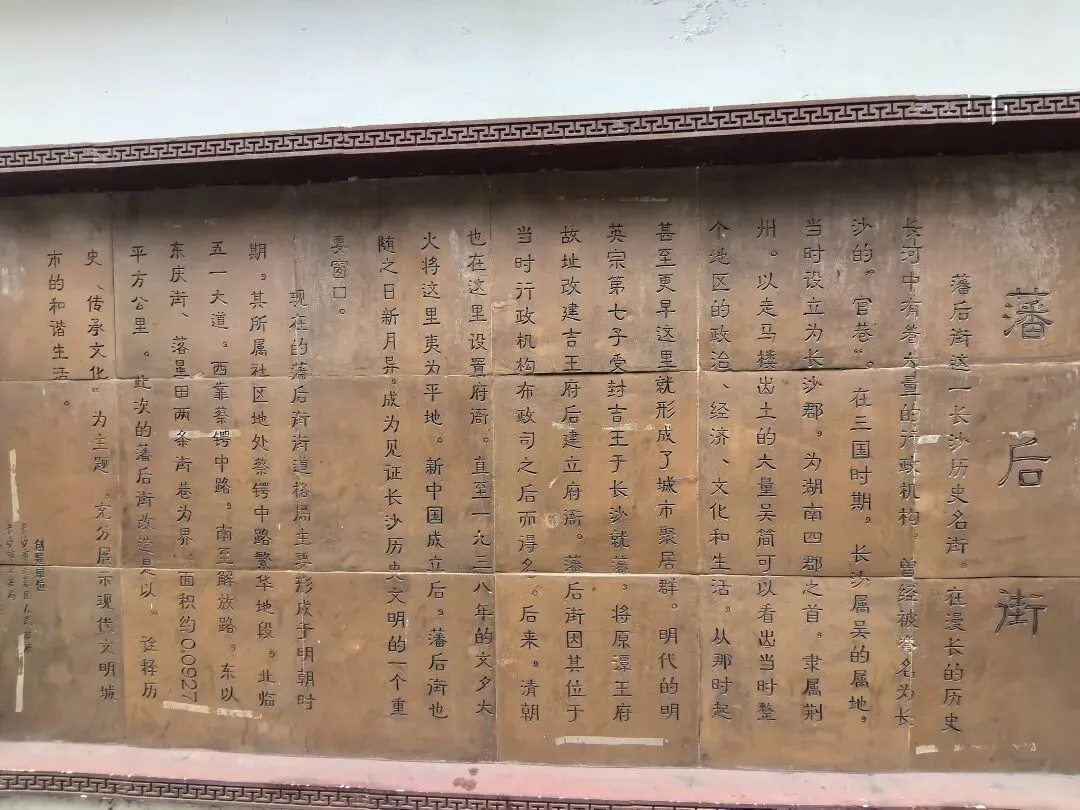 藩后街
藩后街这一长沙历史名街。在漫长的历史
长河中有着大量的行政机构。曾经被誉名为长
沙的"官巷"。在三国时期。长沙属吴的属地。
当时设立为长沙郡。为湖南四郡之首。隶属荆
州。以走马楼出土的大量吴简可以看出当时整
个地区的政治、经济、文化和生活。从那时起
甚至更早这里就形成了城市聚居群。明代的明
英宗第七子受封吉王于长沙就藩。将原潭王府
故址改建吉王府后建立府衙。藩后街因其位于
当时行政机构布政司之后而得名。后来。清朝
也在这里设置府衙。直至一九三八年的文夕大
火将这里夷为平地。新中国成立后。藩后街也
随之日新月异。成为见证长沙历史文明的一个重
要窗口。
现在的藩后街街道格局主要形成于明朝时
期。其所属社区地处蔡锷中路繁华地段。北临
五一大道。西靠蔡锷中路。南至解放路。东以
东庆街、落星田两条街巷为界。面积约0.0927
平方公里。此次的藩后街改造是以。诠释历
史、传承文化"为主题。充分展示现代文明城
市的和谐生活。
创建单位